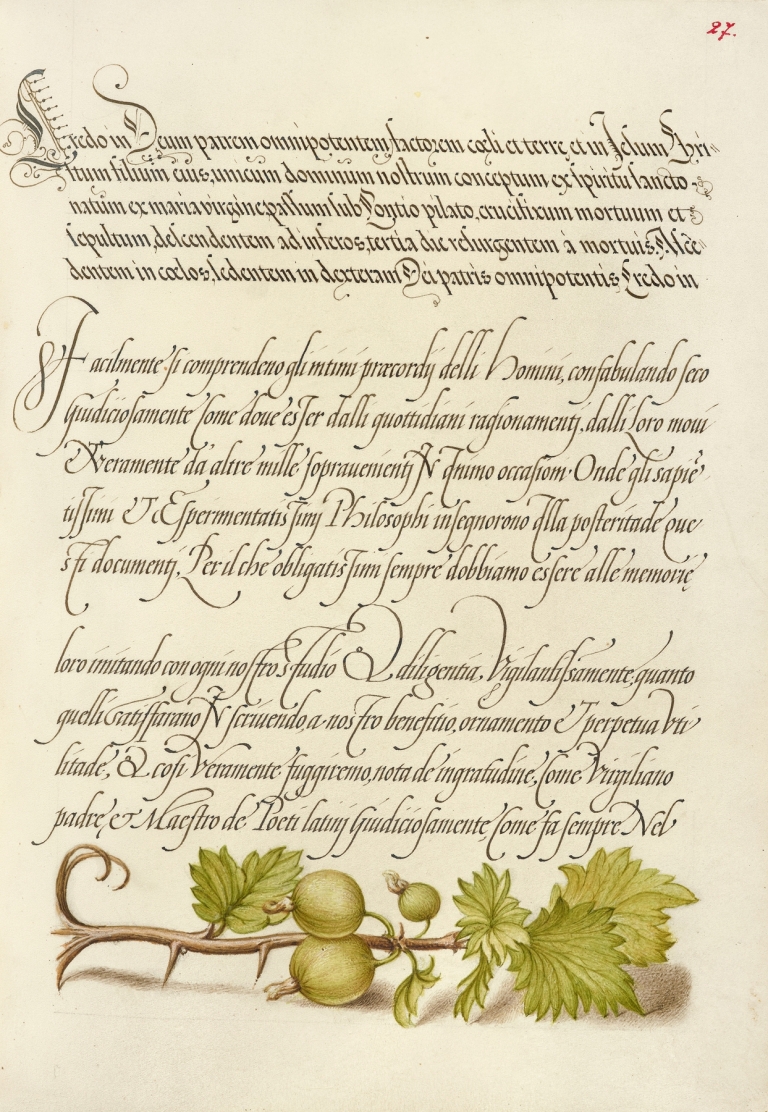 27.
Credo in Deum patrem omnipotentem, factorem cœli et terrę, et in Jesum Chri-
stum filium eius, unicum dominum nostrum conceptum ex spiritu sancto
natum ex maria virgine, passum sub Pontio pilato, crucifixum mortuum et
sepultum, descendentem ad inferos, tertia die resurgentem à mortuis. Asce
dentem in cœlos, sedentem in dexteram Dei patris omnipotentis Credo in
Facilmente si comprendeno gli intimi præcordij delli Homini, confabulando seco
Giudiciosamente Come doue esser dalli quottidiani ragionamentj, dalli Loro moui
Overamente da altre mille sopravenientj IN Animo occasioni. Onde gli sapiē
tissimi Et Esperimentatissimj Philosophi insegnorono Alla posteritade que
sti documentj. Per il che obligatissimi sempre dobbiamo essere alle memorie
loro imitando con ogni nostro studio Et diligentia, Vigilantissamente, quanto
quelli satisffarano IN scriuendo, a nostro benefitio, ornamento Et perpetua Vti
litade, Et cosi Veramente fuggiremo, nota de ingratudine, Come Virgiliano
padre, et Maestro de Poeti latinj Giudiciosamente, Come fa sempre Nel